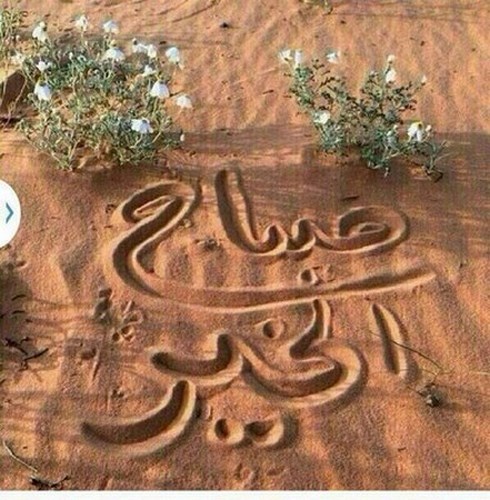 صباح
الخير